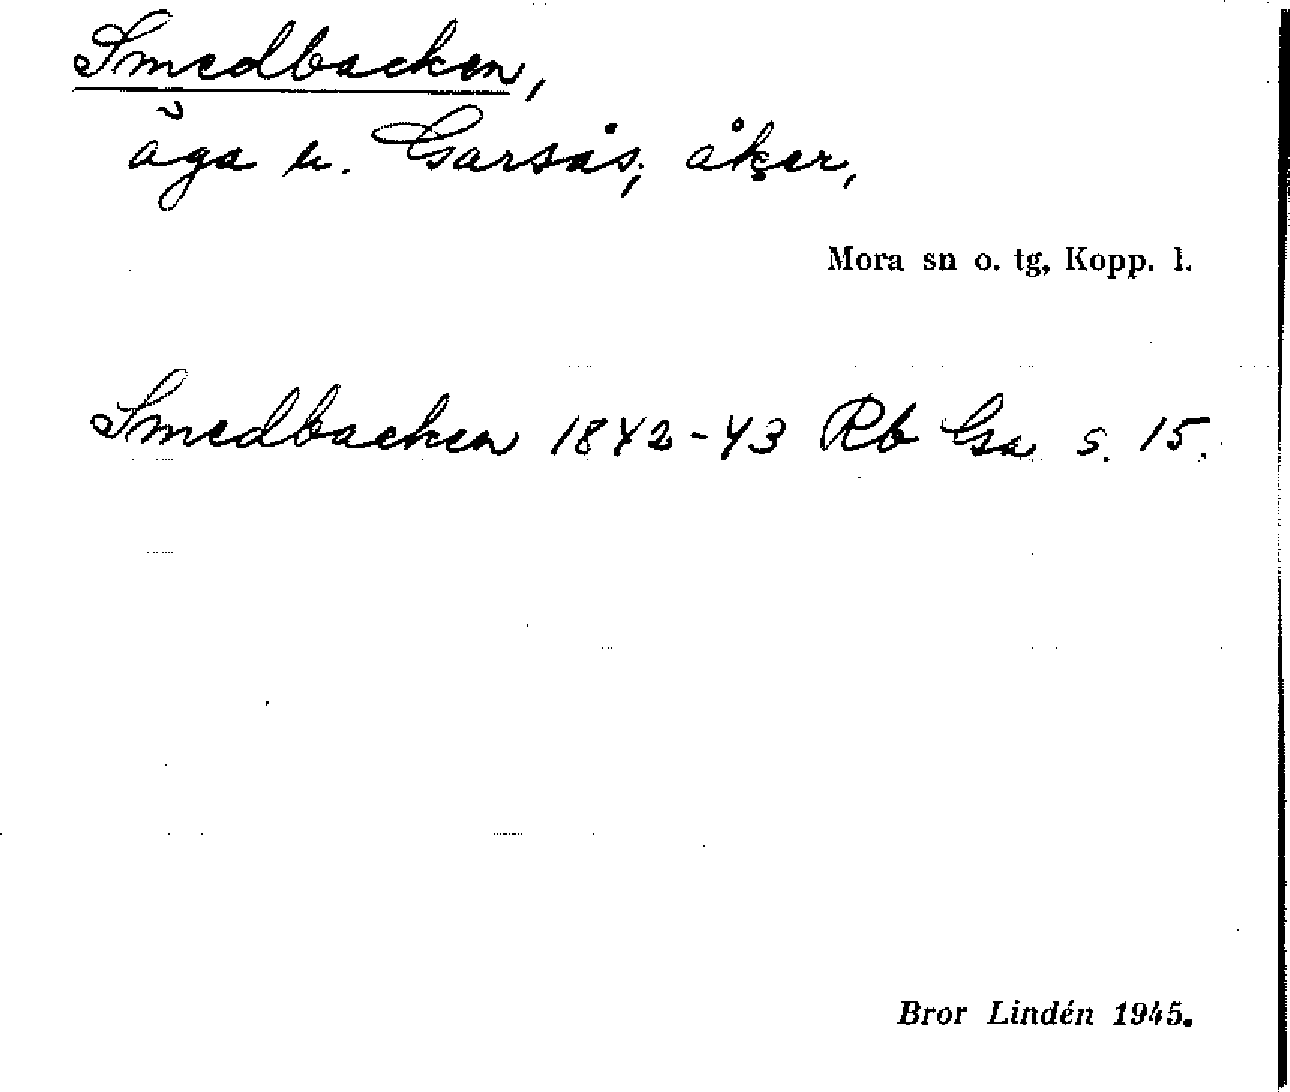 Smedbacken,
äga u. Garsås; åker,
Mora sn o. tg, Kopp. l.
Smedbacken 1842-43 Rb Gsa s. 15.
Bror Lindén 1945.